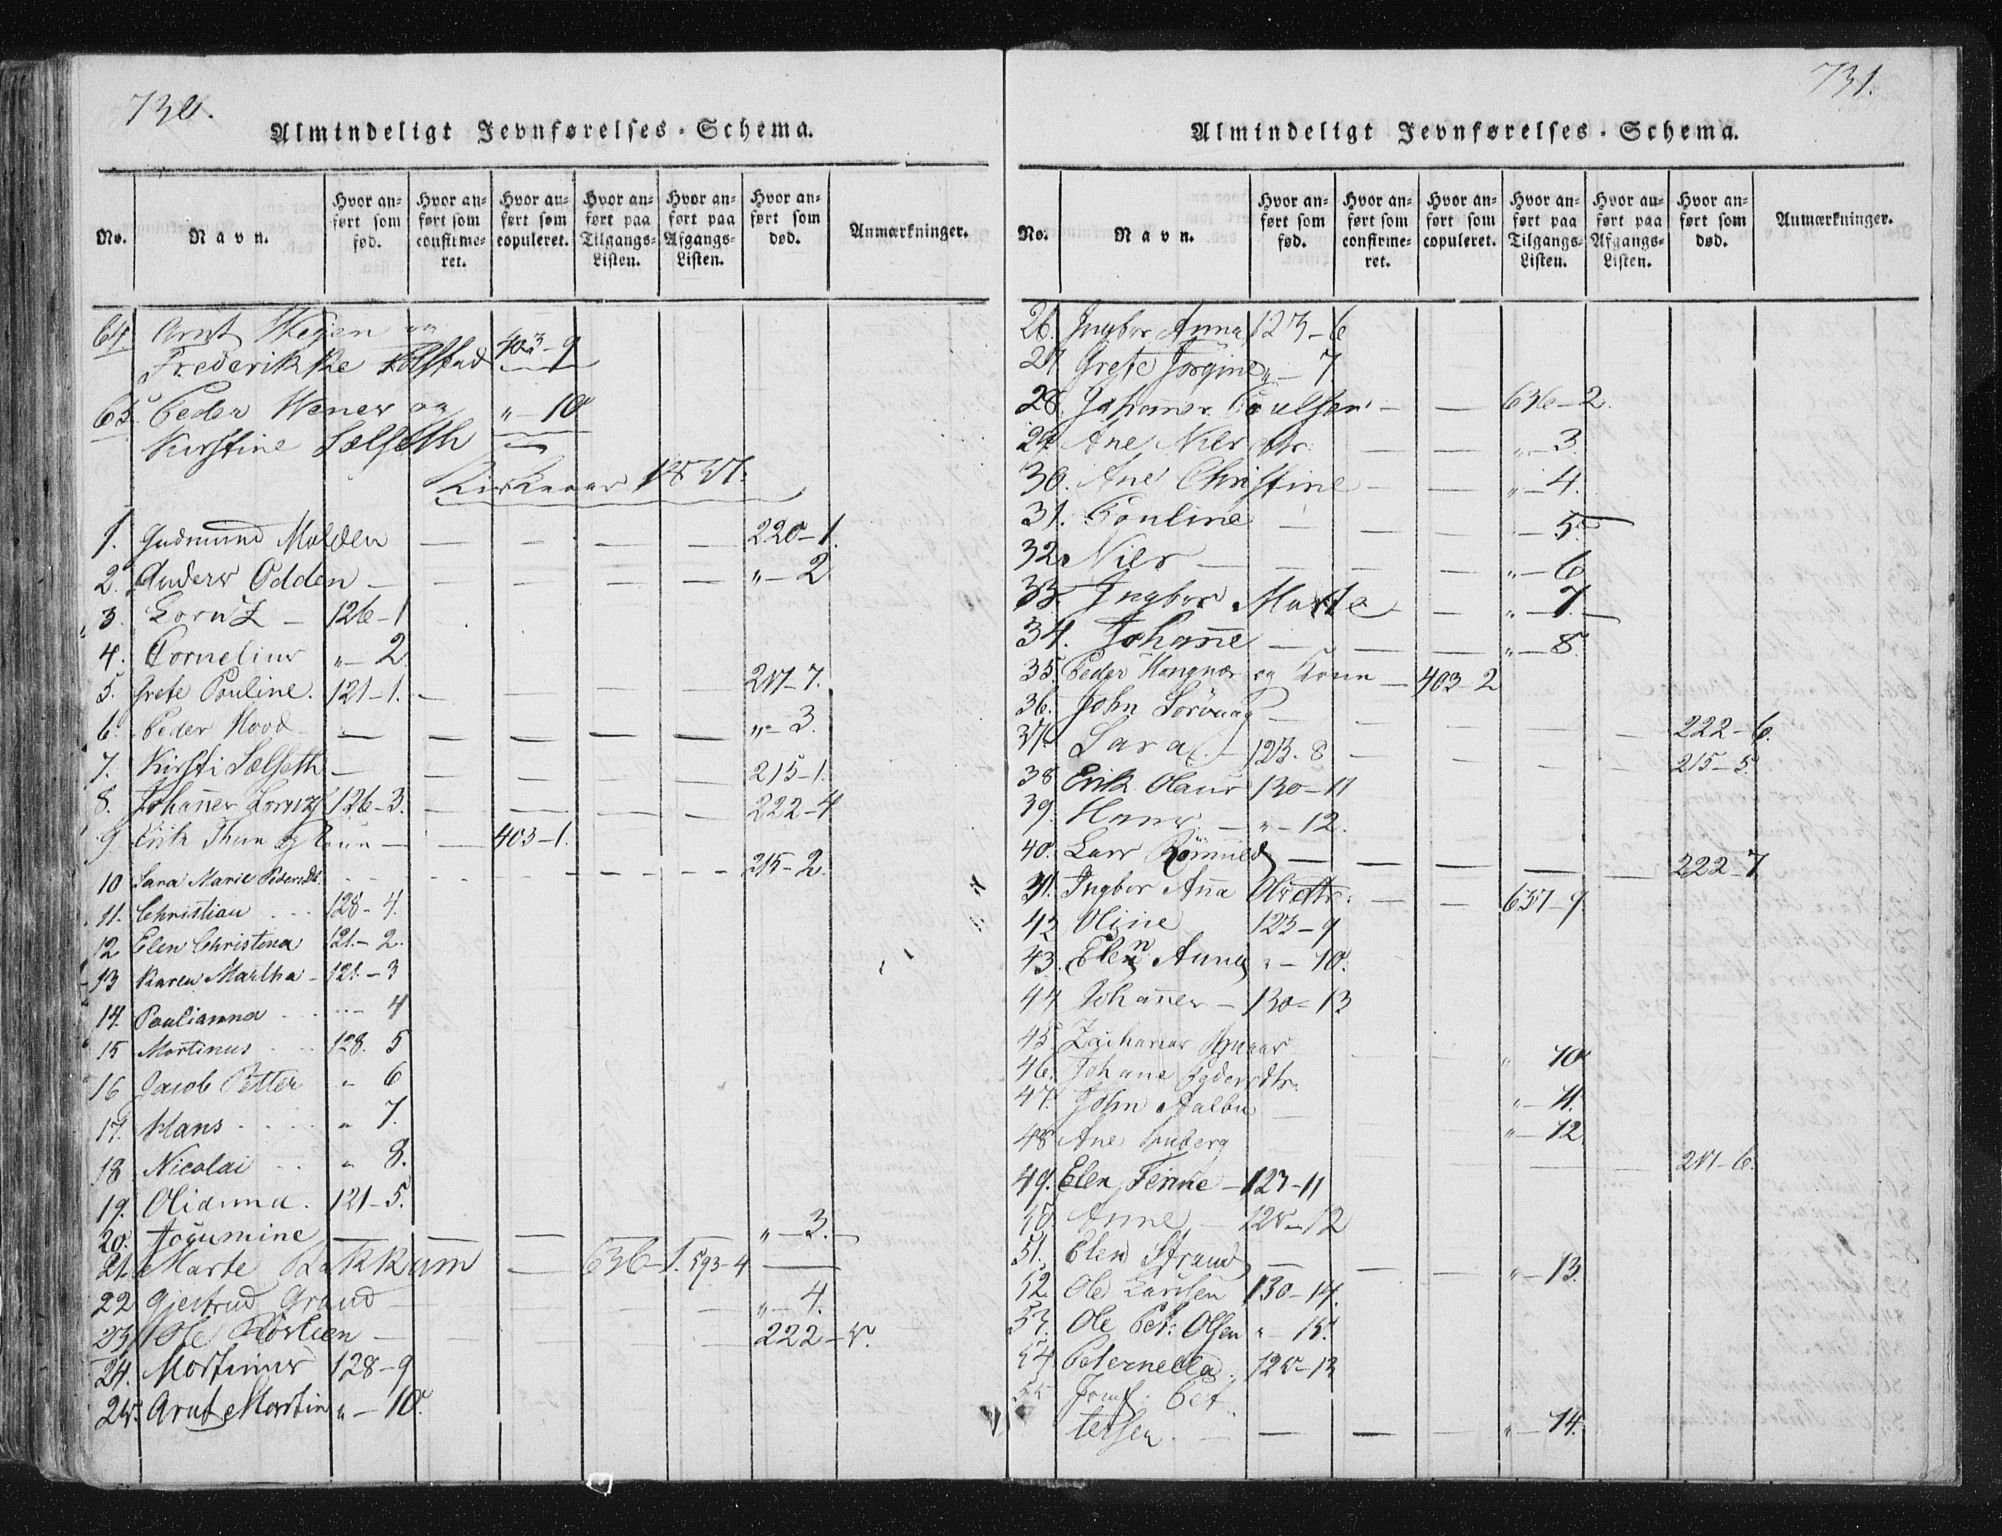 730.
Almindeligt Jevnførelses-Schema.
No. Navn. Hvor anført som fød. Hvor anført som confirmeret. Hvor anført som copuleret. Hvor anført paa Tilgangs-Listen. Hvor anført paa Afgangs-Listen. Hvor anført som død. Anmærkninger.
64. Arnt og
Frederikke 403-9
65. Peder og " - 10
Kirstine Sælseth
Kirkeaar 1837.
1. Gudmund Molden — — — — — 220-1.
2. Anders Odden — — — — — " - 2
3. Lorntz — 126-1
4. Cornelius " - 2.
5. Grete Pouline. 121-1. — 217-7.
6. Peder Hood — — — — — " - 3.
7. Kirsti Sælseth — — — — — 215-1.
8. Johannes Lorntz 126-3. — — — — 222-4
9. Erik Thun og Koun — — 403-1.
10 Sara Marie Pedersdt. - - - - - 215-2.
11. Christian . . . 128-4.
12 Elen Christina 121-2.
13 Karen Martha - 121-3
14. Poulianna . . . . . - 4
15 Mortinus . . . 128. 5
16 Jacob Petter " 6
17. Hans . . . . . " 7.
18 Nicolai . . . " 8.
19. Olianna . 121-5.
20. Jogumine — — — " - 3. -
21. Marte Rakkum — 636-1. 593-4 —
22 Gjertrud Graud — — — " - 4.
23. Ole — 222-5.
24. Mortinus 128-9
25. Arnt Mortin " - 10.
731.
Almindeligt Jevnførelses-Schema.
No. Navn. Hvor anført som fød. Hvor anført som confirmeret. Hvor anført som copuleret. Hvor anført paa Tilgangs-Listen. Hvor anført paa Afgangs-Listen. Hvor anført som død. Anmærkninger.
26. Ingbor Anna 123-6
27 Grete Jorgine " - 7
28. Johannes Poulsen - — 636-2.
29. Ane Nilsdtr. — — " - 3.
30. Ane Christine — — " - 4.
31. Pouline — — — " - 5.
32. Niels — — — — " - 6
33. Ingbor Marte — — " - 7. —
34. Johanne — — — " - 8.
35. Peder og Koun — 403-2
36. John — — — — — 222-6.
37. Sara — 123-8 — — — — 215-5.
38 Erik Olaus 130-11
39. Hans — " - 12.
40. Lars — — — — — 222-7
41. Ingbor Anna Olsdtr. — — 637-9
42 Oline 123-9
43. Elen Anna " - 10.
44 Johannes — 130-13
45. Zacharias " 10
46. Johane
47. John Aalbu — " - 11.
48 Ane " - 12.
217-6.
49. Elen — 123-11
50. Anne — 125-12
51. Elen Strand — — — " - 13.
52. Ole Larsen 130-14.
53. Ole Pet: Olsen " - 15.
54 Peternella . 125-13
55 Pet
tersen . — — — — " - 14.